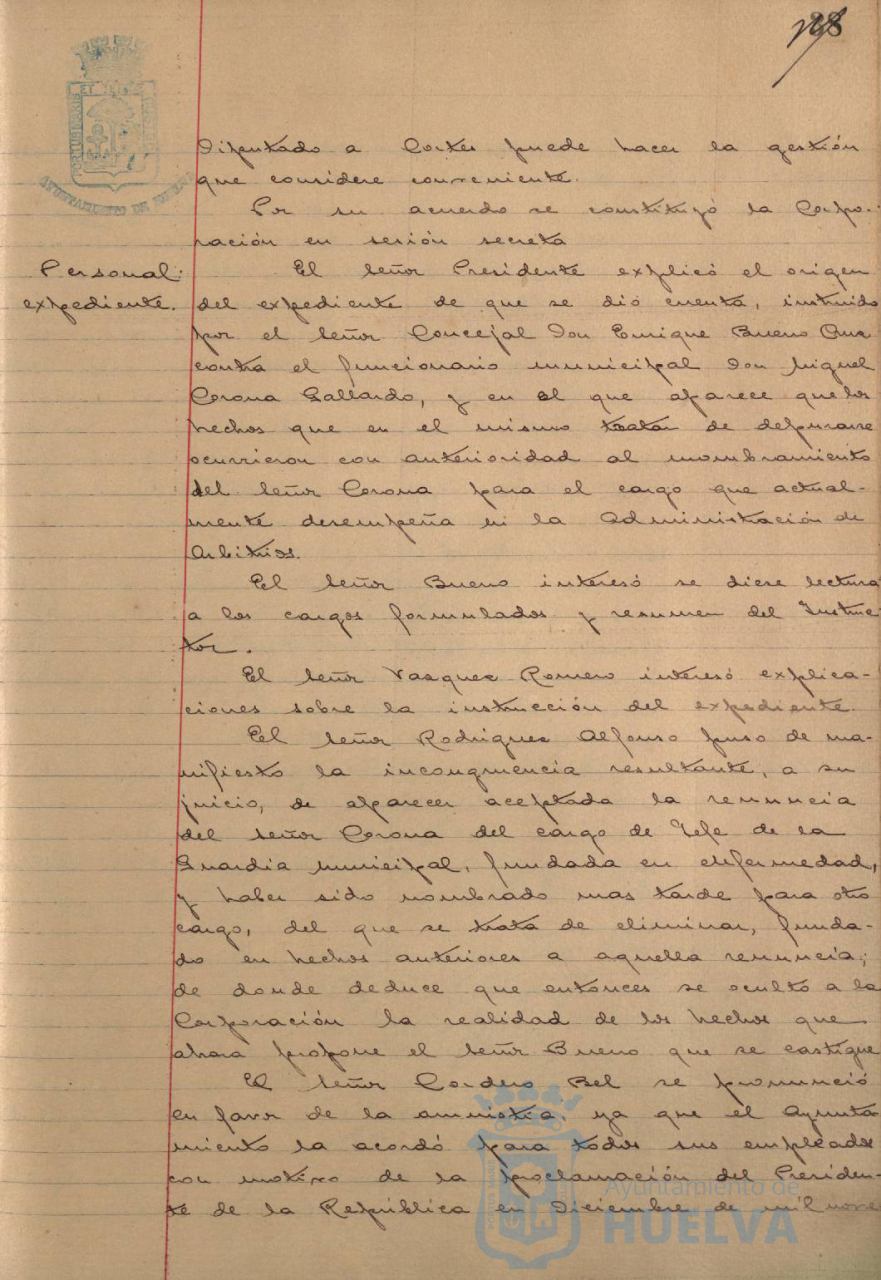 28
Diputado a Cortes puede hacer la gestión
que considere conveniente.
Por su acuerdo se constituyó la Corpo-
ración en sesión secreta
Personal.
expediente.
El señor Presidente explicó el origen
del expediente de que se dió cuenta, instruido
por el señor Concejal Don Enrique Bueno
contra el funcionario municipal Don Miguel
Corona Gallardo, y en el que aparece que los
hechos que en el mismo tratan de depurarse
ocurrieron con anterioridad al nombramiento
del señor Corona para el cargo que actual-
mente desempeña en la Administración de
Arbitrios.
El señor Bueno interesó se diese lectura
a los cargos formulados y resumen del Instruc
tor.
El señor Vasquez Romero interesó explica-
ciones sobre la instrucción del expediente.
El señor Rodriguez Alfonso puso de ma-
nifiesto la incongruencia resultante, a su
juicio, de aparecer aceptada la renuncia
del señor Corona del cargo de Jefe de la
Guardia Municipal, fundada en enfermedad,
y haber sido nombrado mas tarde para otro
cargo, del que se trata de eliminar, funda-
do en hechos anteriores a aquella renuncia;
de donde deduce que entonces se ocultó a la
Corporación la realidad de los hechos que
ahora propone el señor Bueno que se castigue
El señor Cordero Bel se pronunció
en favor de la amnistia, ya que el Ayunta
miento la acordó para todos sus empleados
con motivo de la proclamación del Presiden-
te de la República en Diciembre de mil nove
PORTUS MARIS ET TERRAE CUSTODIA
AYUNTAMIENTO DE HUELVA
Ayuntamiento de
HUELVA